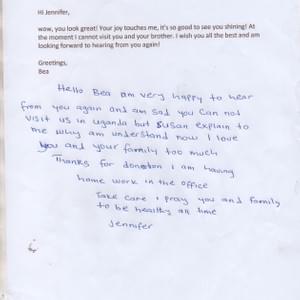 Hi Jennifer,
wow, you look great! Your joy touches me, it's so good to see you shining! At
the moment I cannot visit you and your brother. I wish you all the best and am
looking forward to hearing from you again!
Greetings,
Bea
Hello Bea am very happy to hear
from you again and am sad you can not
visit us in uganda but Susan explain to
me why am understand now I love
you and your family too much
Thanks for donation I am having
home work in the office
Take care I pray you and family
to be healthy all time
Jennifer